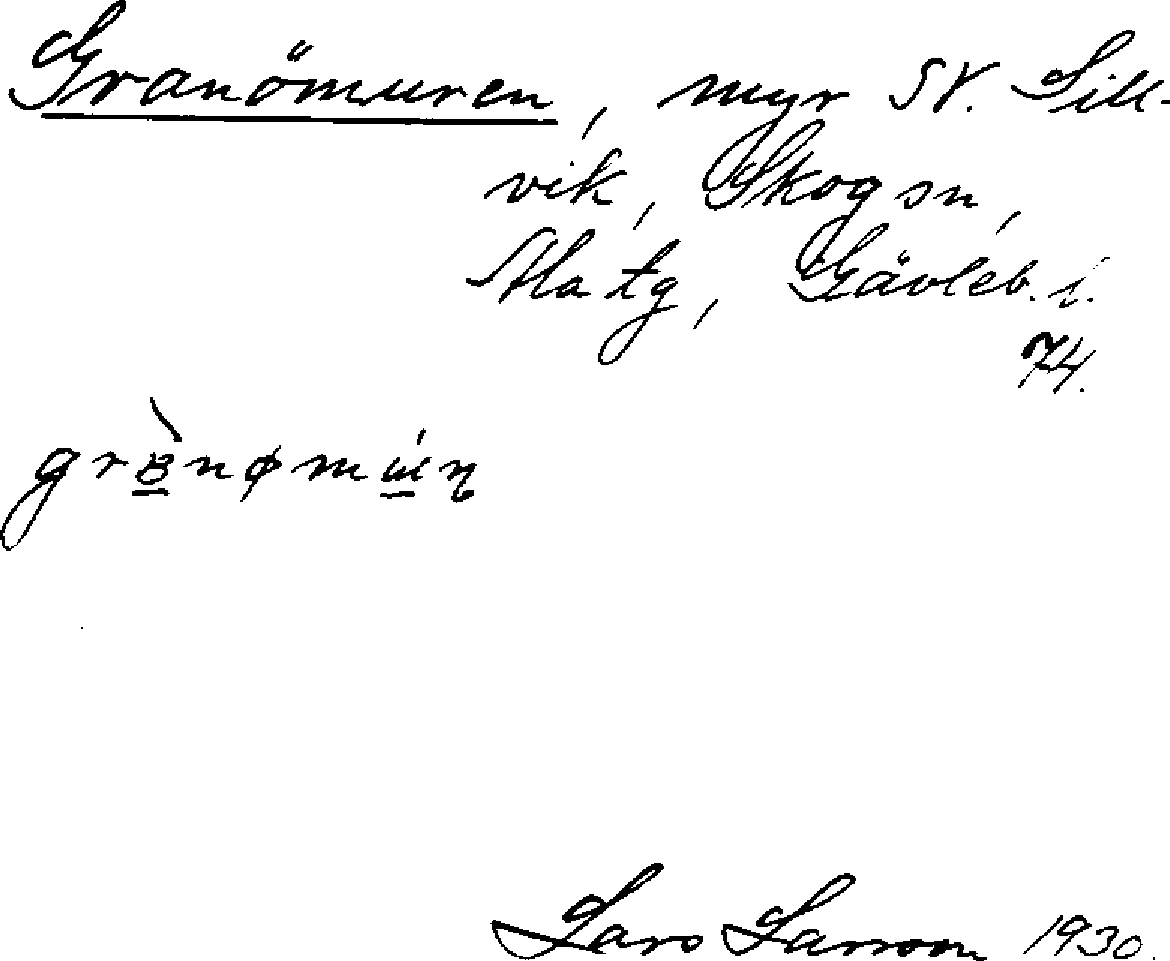 Granömuren, myr SV. Sill-
vik, Skog sn,
Ala tg, Gävleb. l.
74.
Lars Larsson 1930.